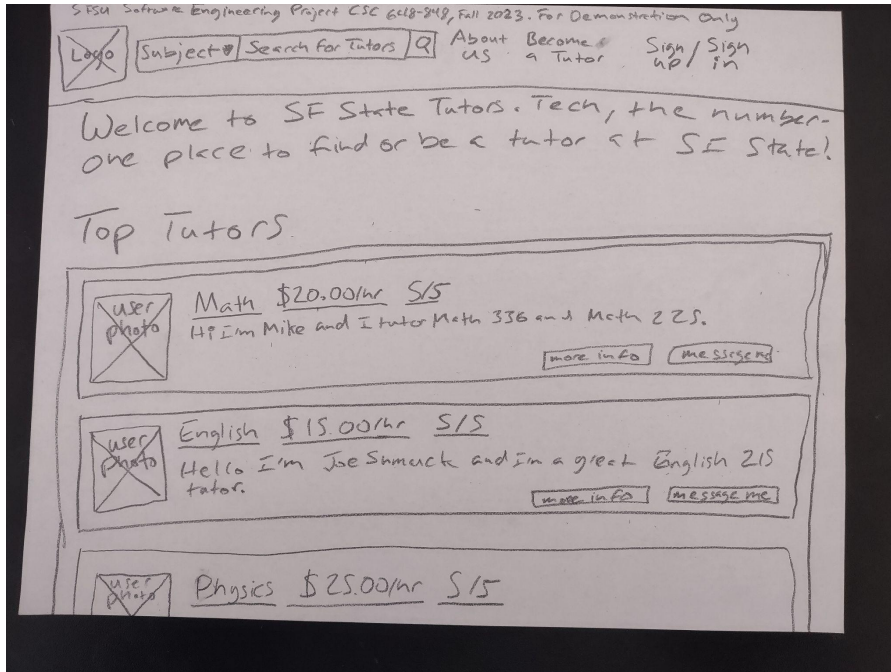 SFSU Software Engineering Project CSC 648-848, Fall 2023. For Demonstration Only
Logo Subject Search for Tutors Q About us Become a Tutor Sign up / Sign in
Welcome to SF State Tutors. Tech, the number-
one place to find or be a tutor at SF State!
Top Tutors
user photo
Math $20.00/hr 5/5
Hi I'm Mike and I tutor Math 336 and Math 225.
more info message me
user photo
English $15.00/hr 5/5
Hello I'm Joe Shmuck and I'm a great English 215
tutor.
more info message me
user photo
Physics $25.00/hr 5/5